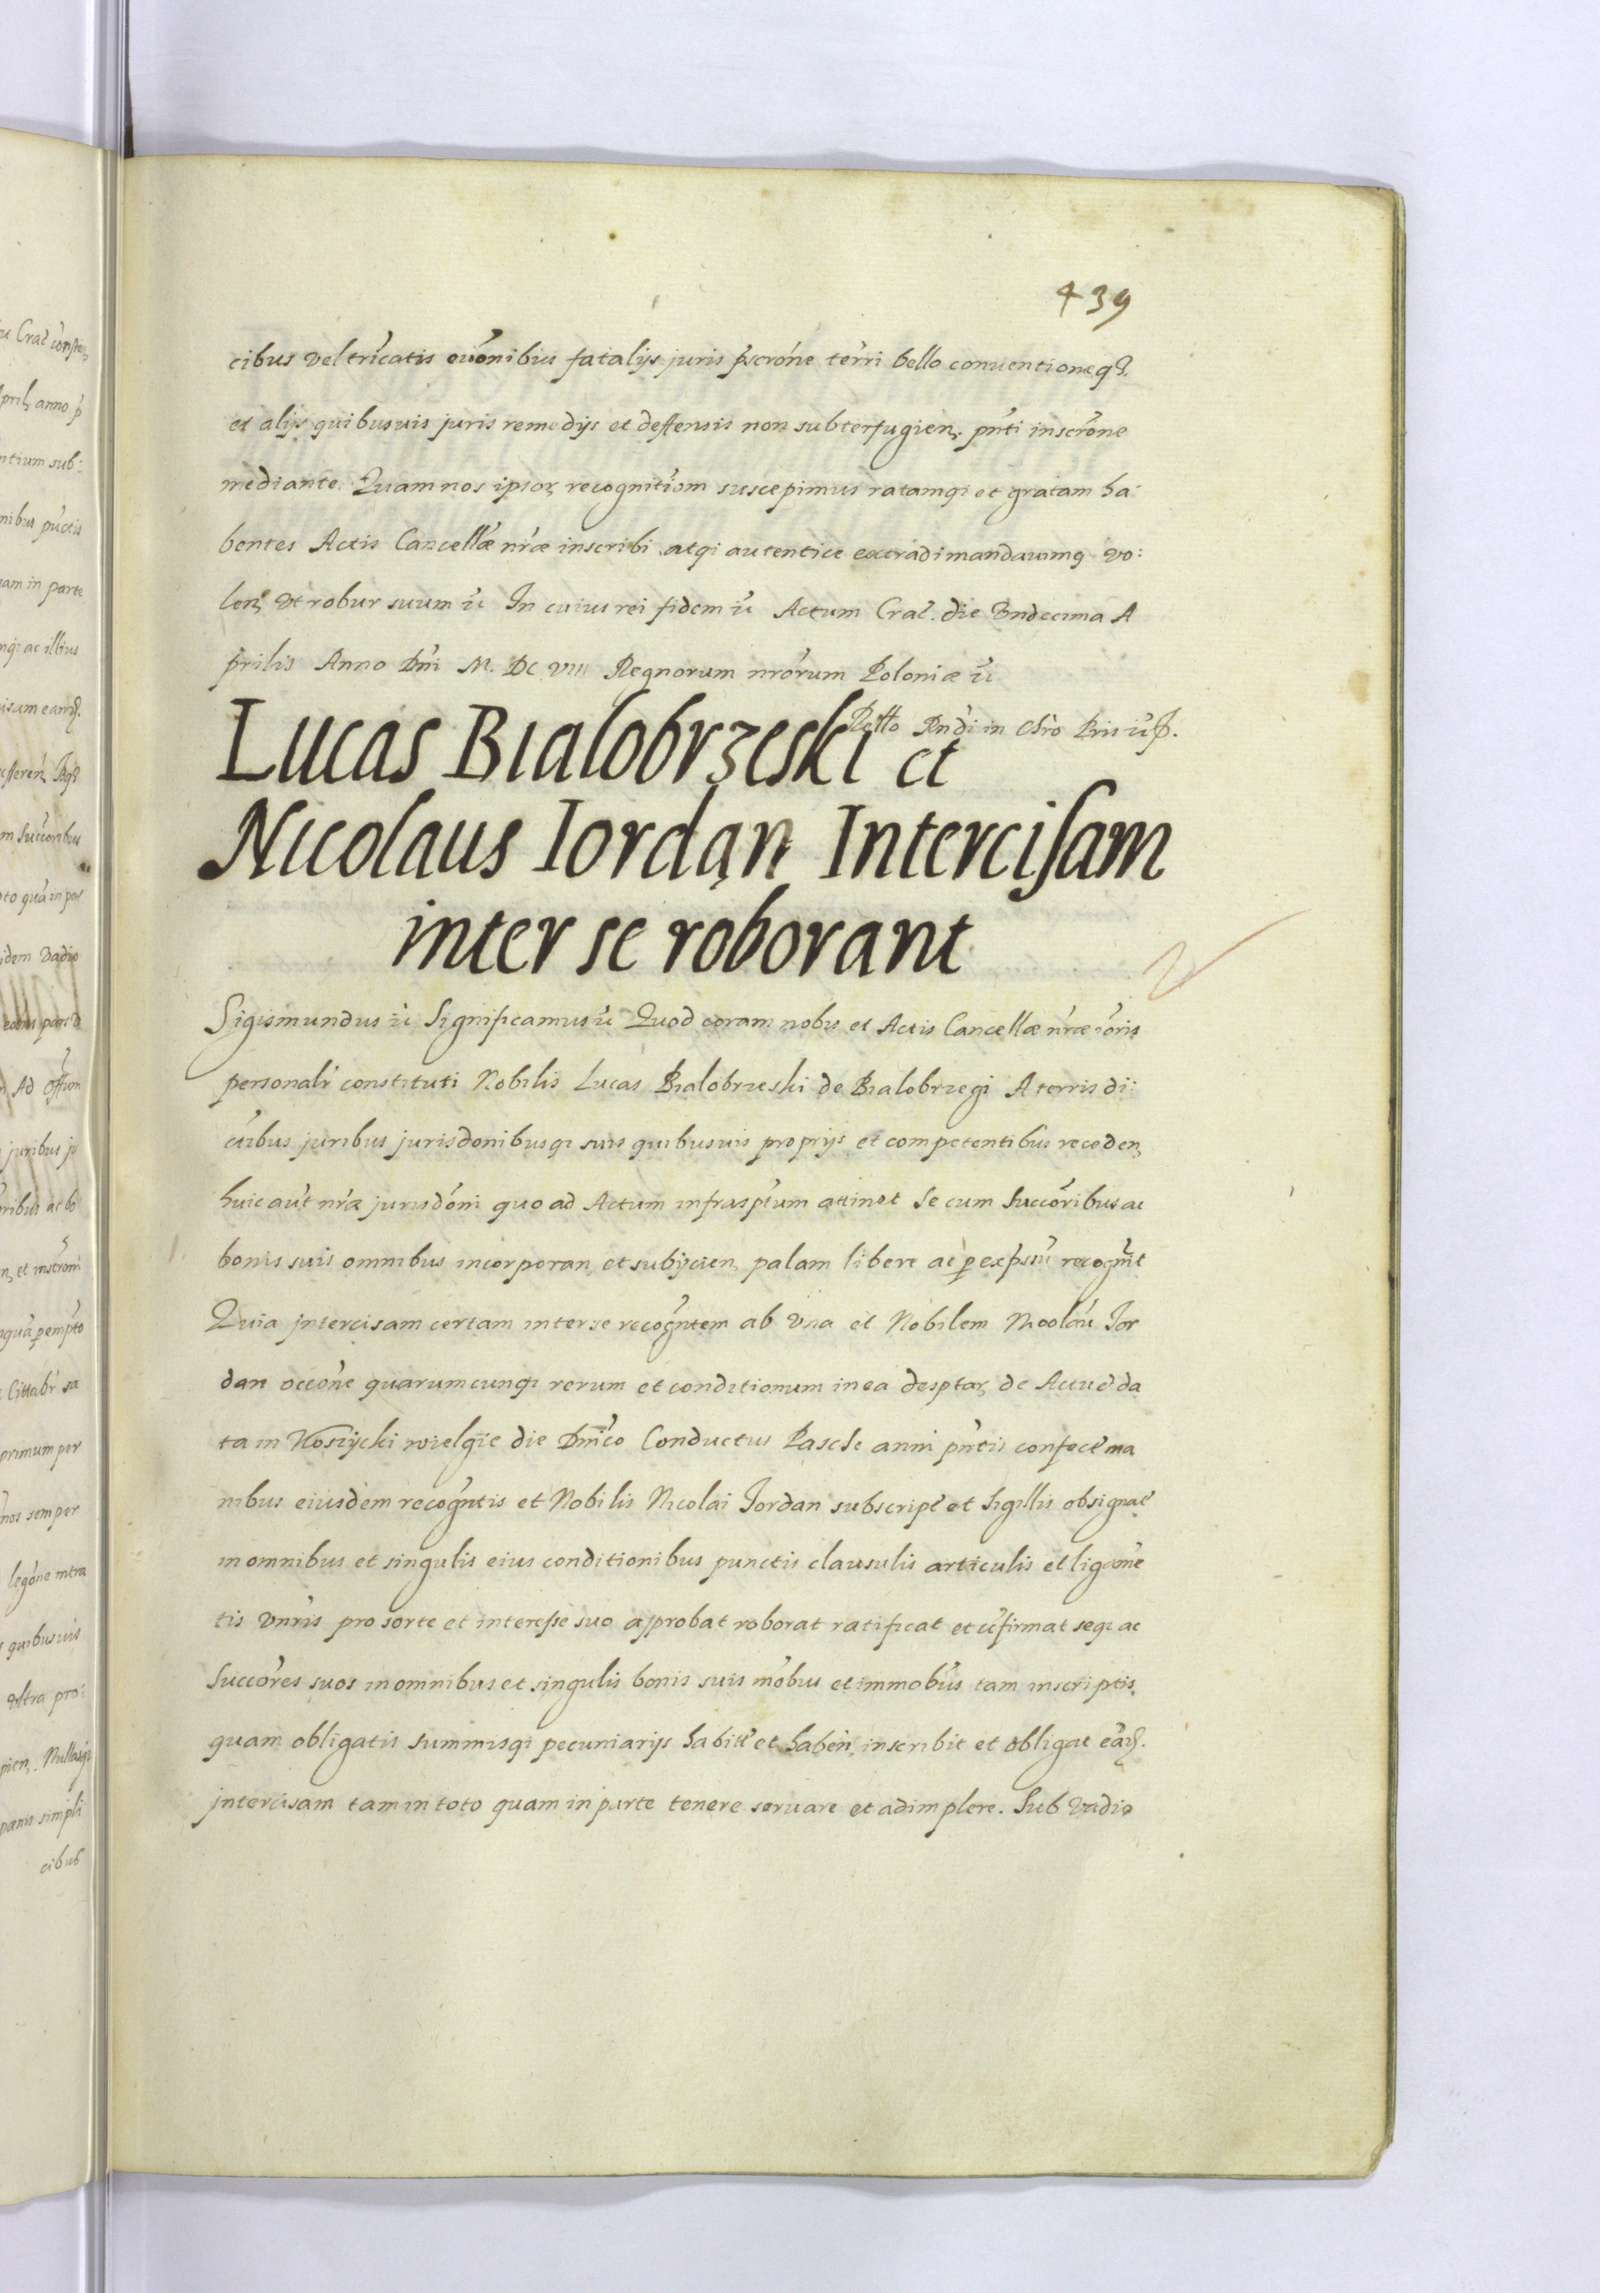 439
cibus vel tricatis euõnibus fatalijs juris pscrõne terri bello conuentioneqȝ
et alijs quibusuis juris remedijs et deffensis non subterfugien, pnti inscrõne
mediante. Quam nos ipsor, recognitiom suscepimus ratamqȝ et gratam ha:
bentes Actis Cancellæ nræ inscribi atqȝ autentice extradi mandauimq vo:
len, vt robur suum ỹ In cuius rei fidem ỹ Actum Crac. die Vndecima A
prilis Anno Dni M. DC VIII Regnorum nrorum Poloniæ ỹ
Retto Rndi in Chro Pris ỹ
Lucas Bialobrzeski et
Nicolaus Iordan Intercisam
inter se roborant
Sigismundus ỹ Significamus ỹ Quod coram nobis et Actis Cancellæ nræ õris
personalr constituti Nobilis Lucas Bialobrzeski de Bialobrzegi A terris di:
cibus juribus jurisdonibusqȝ suis quibusuis proprijs et competentibus receden,
huic aut nræ jurisdoni quo ad Actum infrasptum attinet Se cum Succoribus ac
bonis suis omnibus incorporan, et subijcien, palam libere ac p expssu recognit
Quia jntercisam certam inter se recogntem ab vna et Nobilem Nicolau Jor
dan occõne quarumcunqȝ rerum et conditionum in ea desptar, de Actu et da
ta in KosZycki wielgie die Dnico Conductus Pasche anni pntis confect ma
nibus eiusdem recogntis et Nobilis Nicolai Jordan subscript et Sigillis obsignat
in omnibus et singulis eius conditionibus punctis clausulis articulis et ligame
tis vnris pro sorte et interesse suo approbat roborat ratificat et cfirmat seqȝ ac
Succores suos in omnibus et singulis bonis suis mobus et immobus tam inscriptis
quam obligatis Summisqȝ pecuniarijs habitt et haben, inscribit et obligat eadȝ.
jntercisam tam in toto quam in parte tenere seruare et adimplere. Sub Vadio